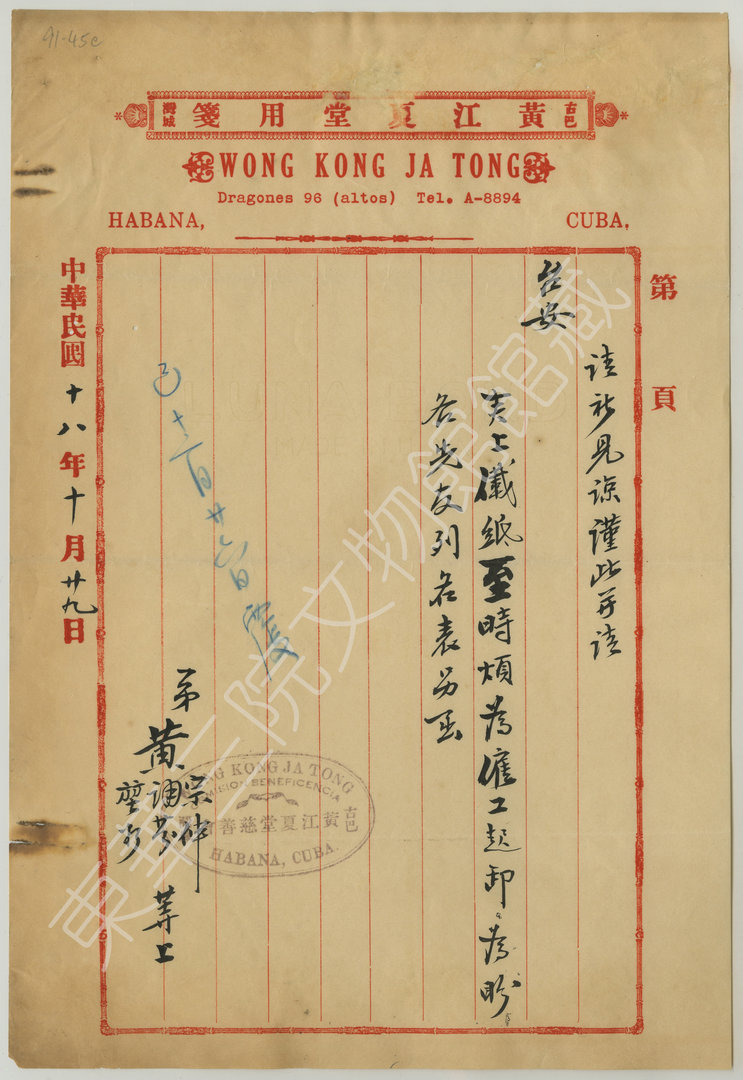 91-45c
古巴 黃江夏堂用箋 灣城
WONG KONG JA TONG
Dragones 96 (altos) Tel. A-8894
HABANA, CUBA,
第 頁
請祈見諒謹此并請
台安
夾上儎紙至時煩為僱工起卸為盼
各先友列名表另函
弟 黃 宗 調 等上
十一月廿六日覆
中華民國十八年十月廿九日
WONG KONG JA TONG
BENEFICENCIA
古巴 黃江夏堂慈善會
HABANA, CUBA.
東華三院文物館館藏